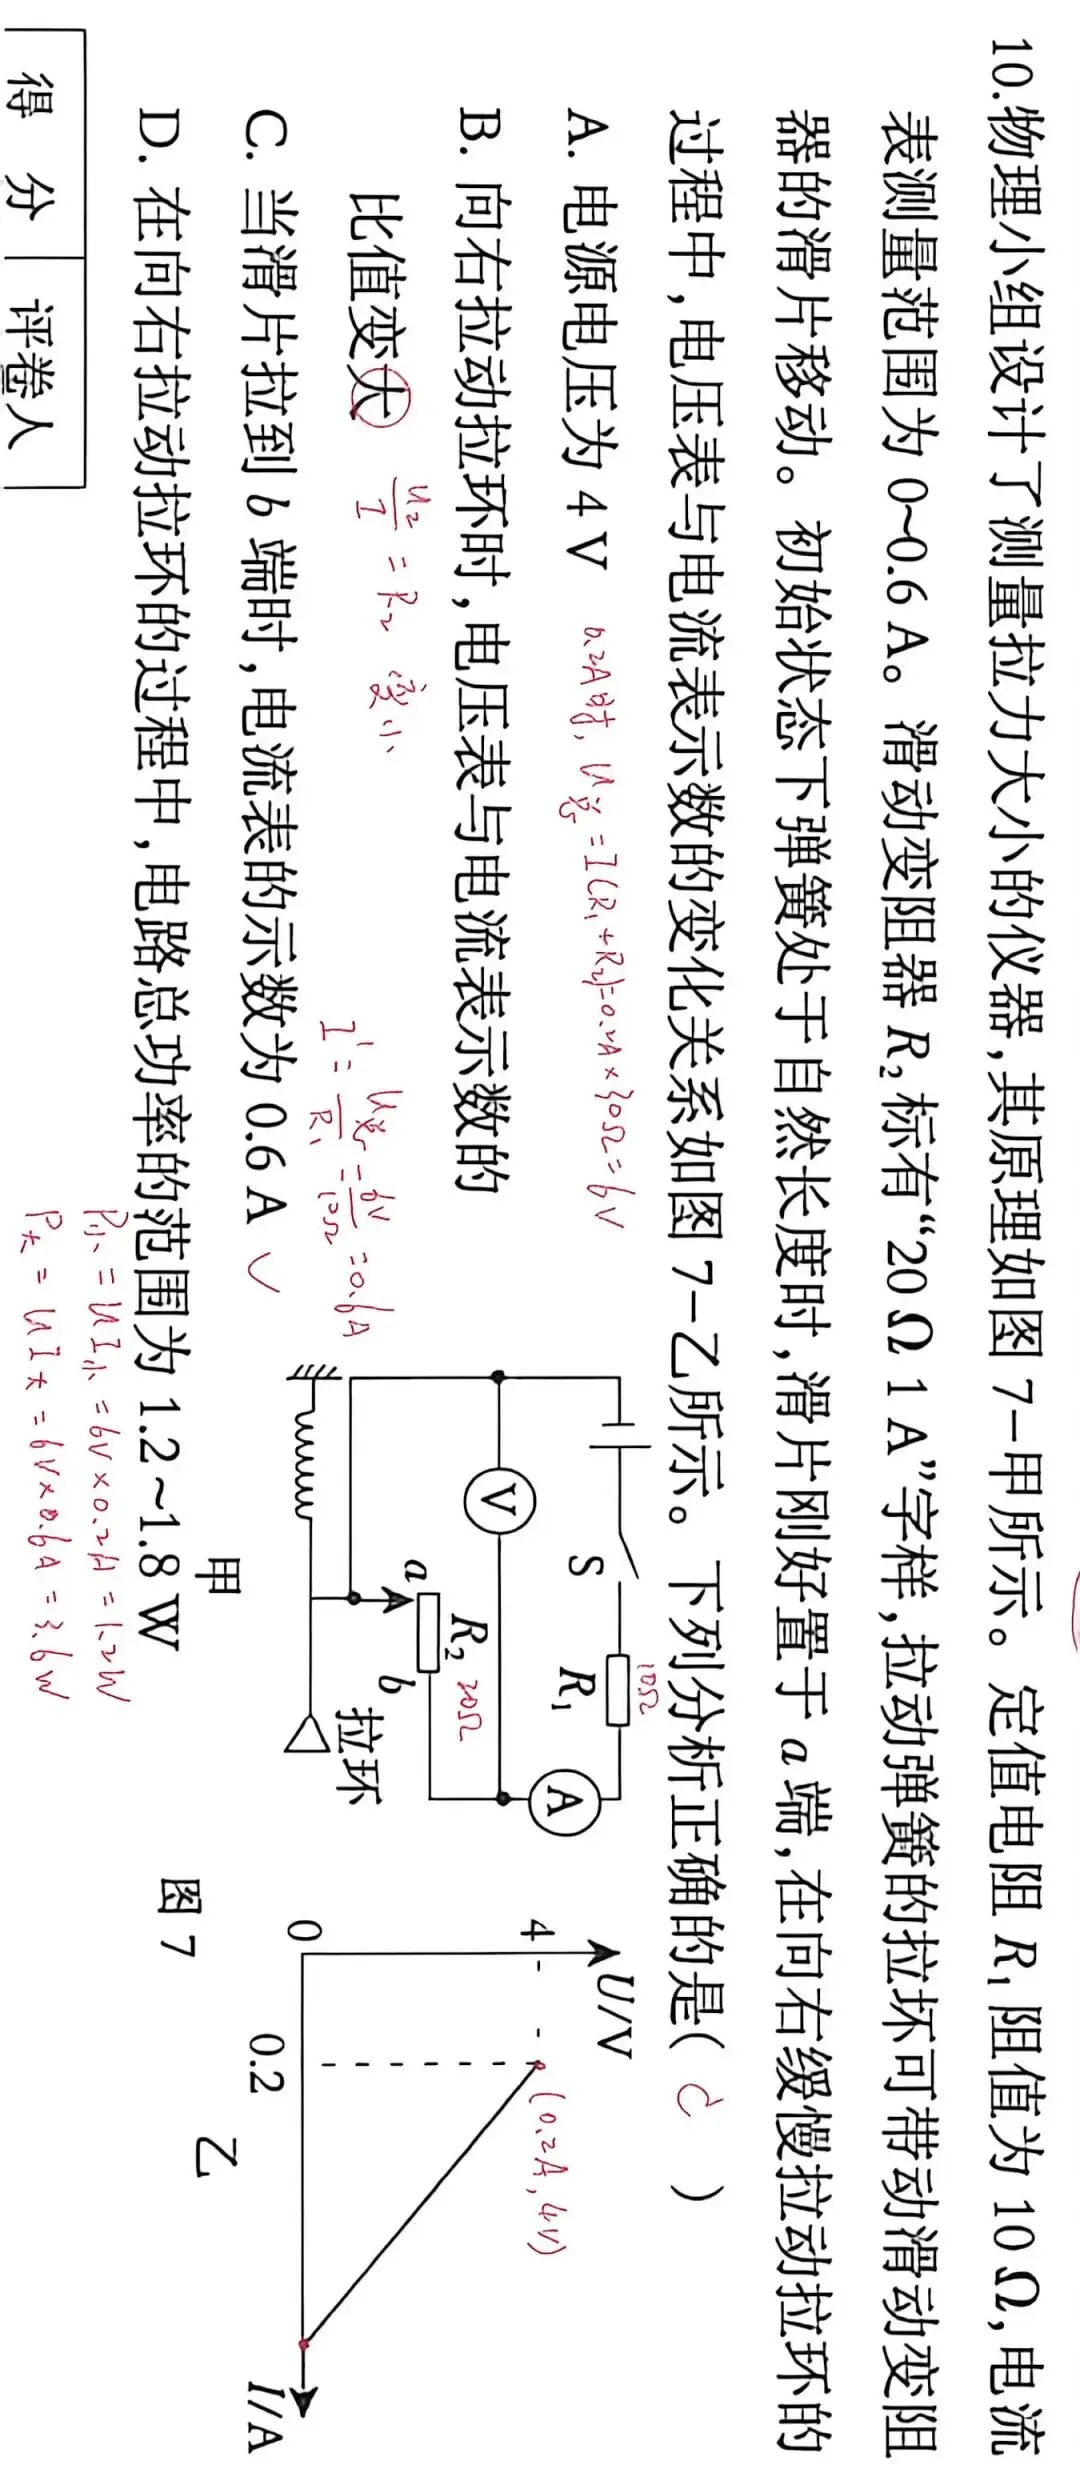 10.物理小组设计了测量拉力大小的仪器,其原理如图 7-甲所示。定值电阻 R₁ 阻值为 10 Ω,电流
表测量范围为 0~0.6 A。滑动变阻器 R₂ 标有“20 Ω 1 A”字样,拉动弹簧的拉坏可带动滑动变阻
器的滑片移动。初始状态下弹簧处于自然长度时,滑片刚好置于 a 端,在向右缓慢拉动拉环的
过程中,电压表与电流表示数的变化关系如图 7-乙所示。下列分析正确的是( C )
A. 电源电压为 4 V
0.2A时, U总=I(R₁+R₂)=0.2A×30Ω=6V
B. 向右拉动拉环时,电压表与电流表示数的
比值变大
U₂/I=R₂ 变小
C. 当滑片拉到 b 端时,电流表的示数为 0.6 A ✓
I'=U总/R₁=6V/10Ω=0.6A
D. 在向右拉动拉环的过程中,电路总功率的范围为 1.2~1.8 W
P小=UI小=6V×0.2A=1.2W
P大=UI大=6V×0.6A=3.6W
S
R₁
10Ω
V
A
R₂
20Ω
a
b
拉环
甲
U/V
4
(0.2A,4V)
0
0.2
I/A
乙
图 7
得 分
评卷人